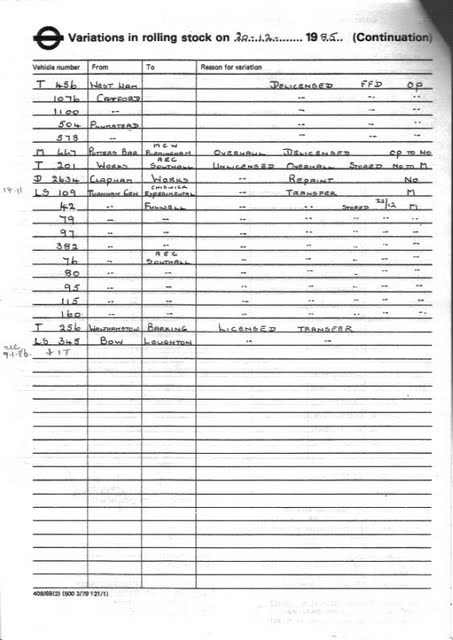 Variations in rolling stock on 20.12. 1985. (Continuation)
Vehicle number From To Reason for variation
T 456 WEST HAM DELICENSED FFD OP
1076 CATFORD -- -- --
1100 -- -- -- --
504 PLUMSTEAD -- -- --
578 -- -- -- --
M 447 POTTERS BAR MCW BIRMINGHAM OVERHAUL DELICENSED OP TO NO
T 201 WORKS AEC SOUTHALL UNLICENSED OVERHAUL STORED NO TO M
D 2634 CLAPHAM WORKS -- REPAINT NO
19.11 LS 109 TURNHAM GRN CHISWICK EXPERIMENTAL -- TRANSFER M
42 -- FULWELL -- -- -- STORED 22/12 M
79 -- -- -- -- -- -- --
97 -- -- -- -- -- -- --
382 -- -- -- -- -- -- --
76 -- AEC SOUTHALL -- -- -- -- --
80 -- -- -- -- -- -- --
95 -- -- -- -- -- -- --
115 -- -- -- -- -- -- --
160 -- -- -- -- -- -- --
T 256 WALTHAMSTOW BARKING LICENSED TRANSFER
LS 345 BOW LOUGHTON -- --
REC 9.1.86. + 1T
408/69(2) (500 3/79 121/1)